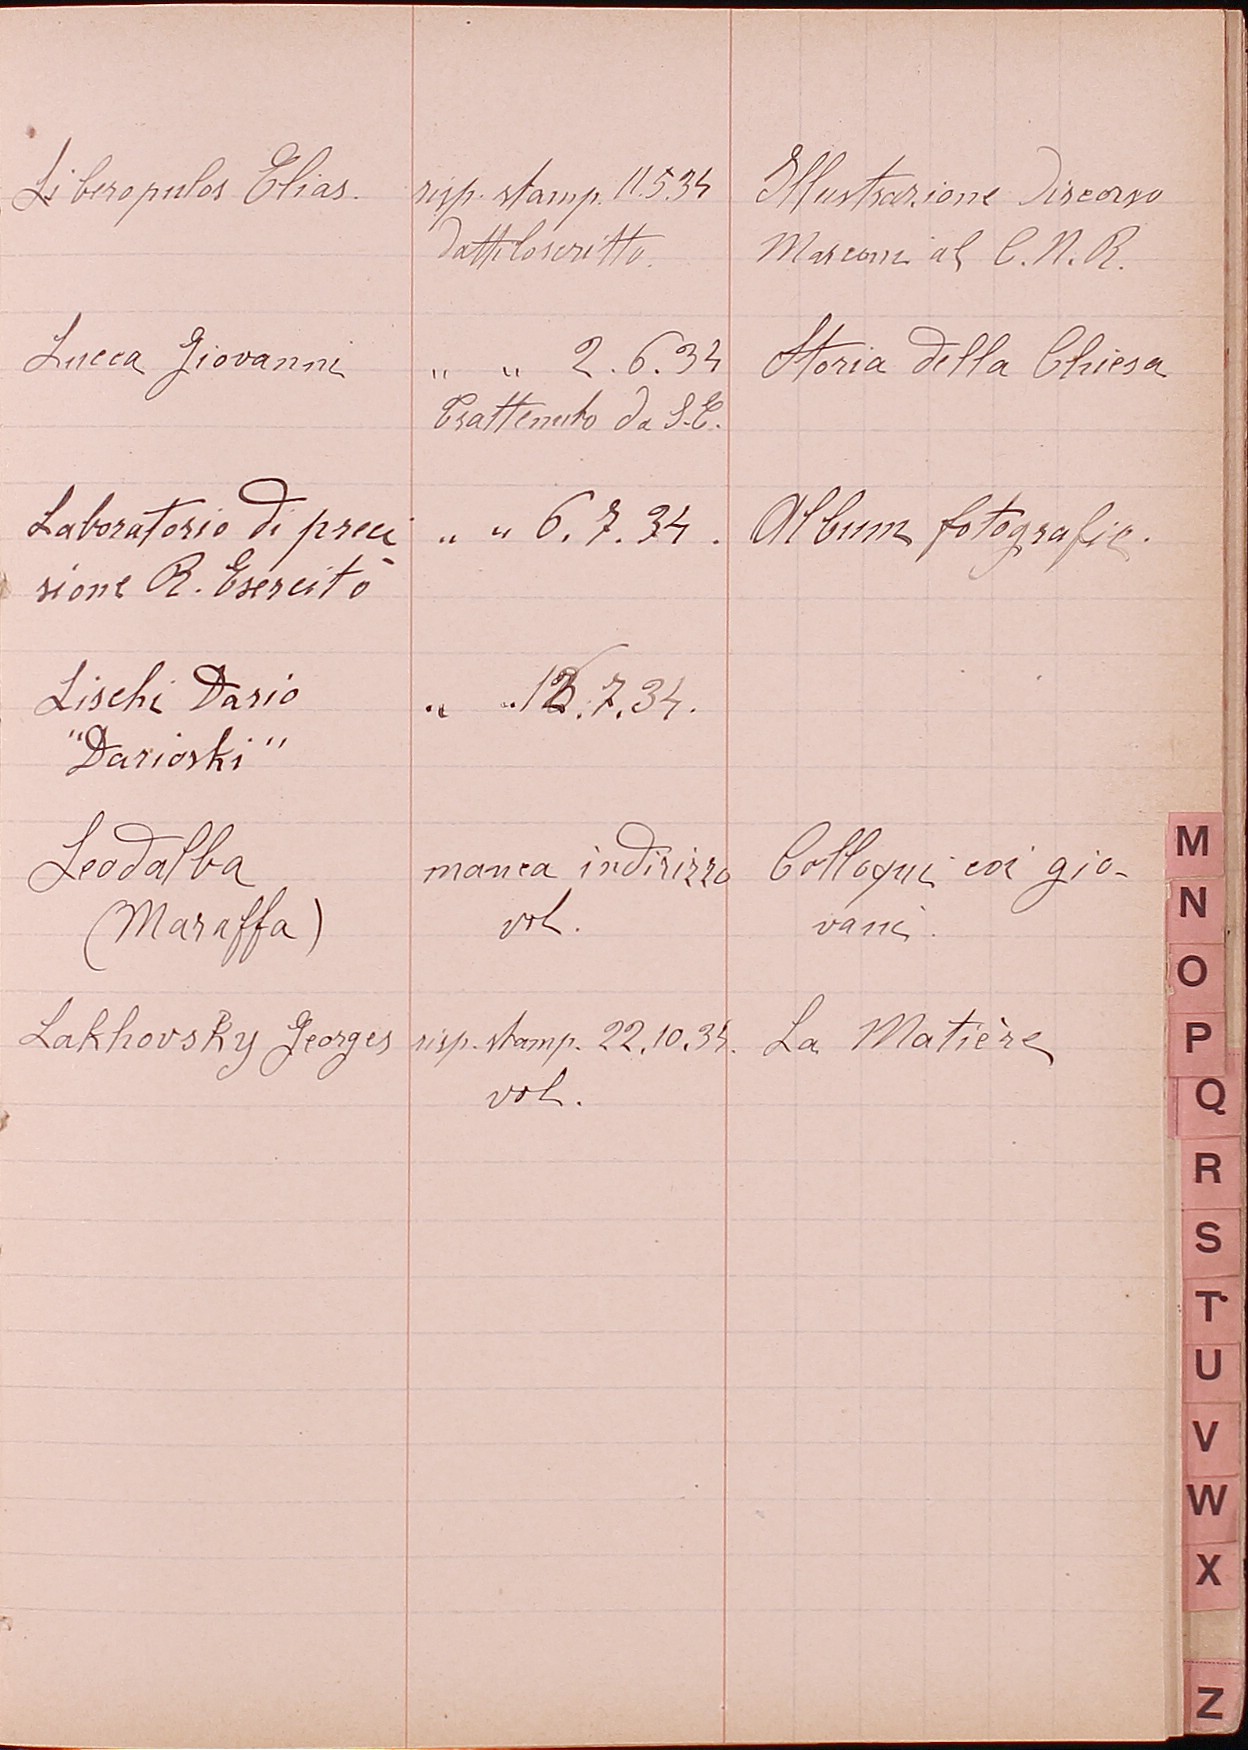 Liberopulos Elias. risp. stamp. 11.5.34 Illustrazione Discorso
dattiloscritto. Marconi al C.N.R.
Lucca Giovanni " " 2.6.34 Storia della Chiesa
Trattenuto da S.E.
Laboratorio di preci " " 6.7.34. Album fotografie.
sione R. Esercito
Lischi Dario " " .7.34.
"Darioski"
Leodalba manca indirizzo Colloqui coi gio-
(Maraffa) vol. vani.
Lakhovsky Georges risp. stamp. 22.10.34. La Matière
vol.
M
N
O
P
Q
R
S
T
U
V
W
X
Z